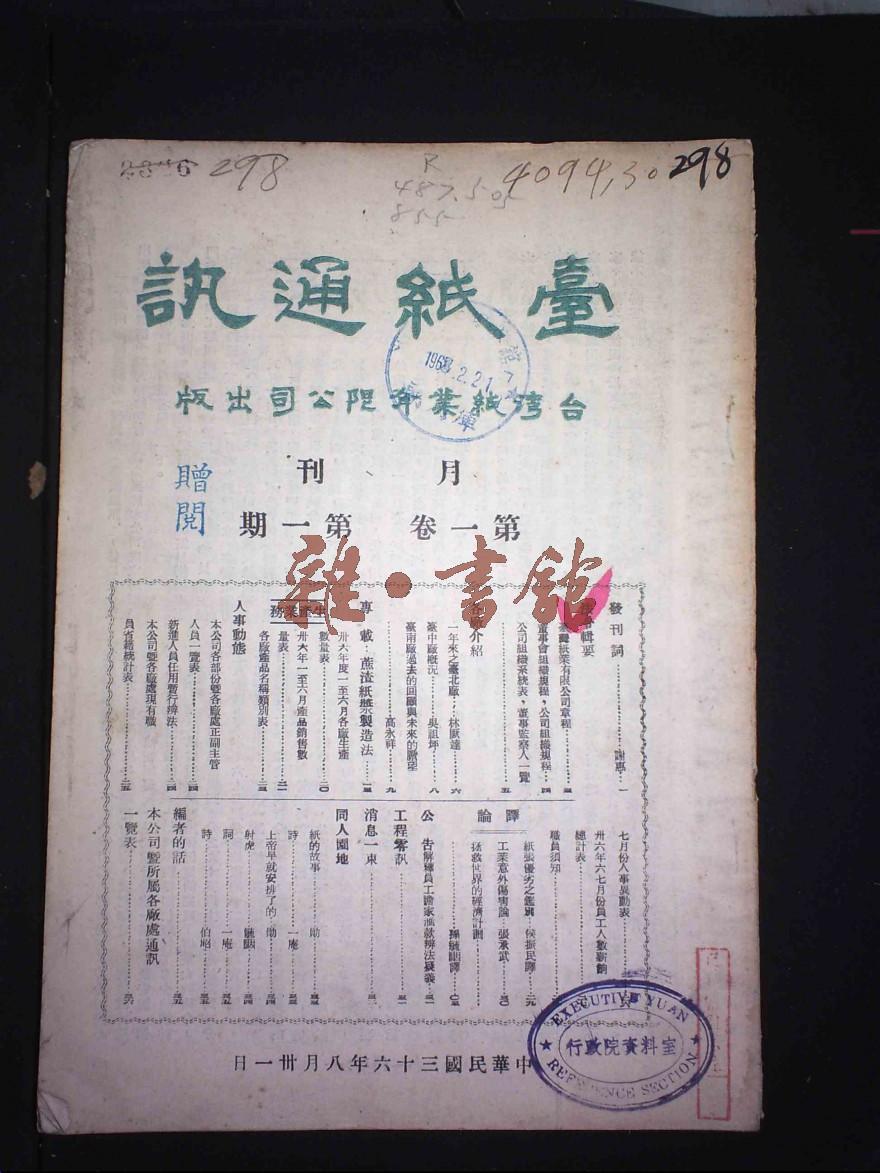 298
R
487.505
855
4094,30
298
臺紙通訊
台灣紙業有限公司出版
1968.2.21
贈閱
月刊
第一卷 第一期
雜·書館
發刊詞 謝惠 一
臺灣紙業有限公司章程
董事會組織規程,公司組織規程 四
公司組織系統表,董事監察人一覽
五
各廠介紹
一年來之臺北廠 林 六
臺中廠概況 吳祖坪 八
臺南廠過去的回顧與未來的瞻望
高永祥 九
專載 蔗渣紙漿製造法
生產業務
卅六年度一至六月各廠生產
數量表 二〇
卅六年一至六月產品銷售數
量表
各廠產品名稱類別表
人事動態
本公司各部份暨各廠處正副主管
人員一覽表 二四
新進人員任用暫行辦法 二四
本公司暨各廠處現有職
員省籍統計表 二五
七月份人事異動表
卅六年六七月份員工人數薪餉
總計表
職員須知
譯論
紙張優劣之鑑別 侯振民譯 二九
工業意外傷害論 張承武
拯救世界的經濟計劃
公告
工程零訊
消息一束
同人園地
紙的故事 勛
詩 一庵
上帝早就安排了的 勛
射虎
詞 一庵
詩 伯昭
編者的話
本公司暨所屬各廠處通訊
一覽表
EXECUTIVE YUAN
行政院資料室
REFERENCE SECTION
中華民國三十六年八月卅一日